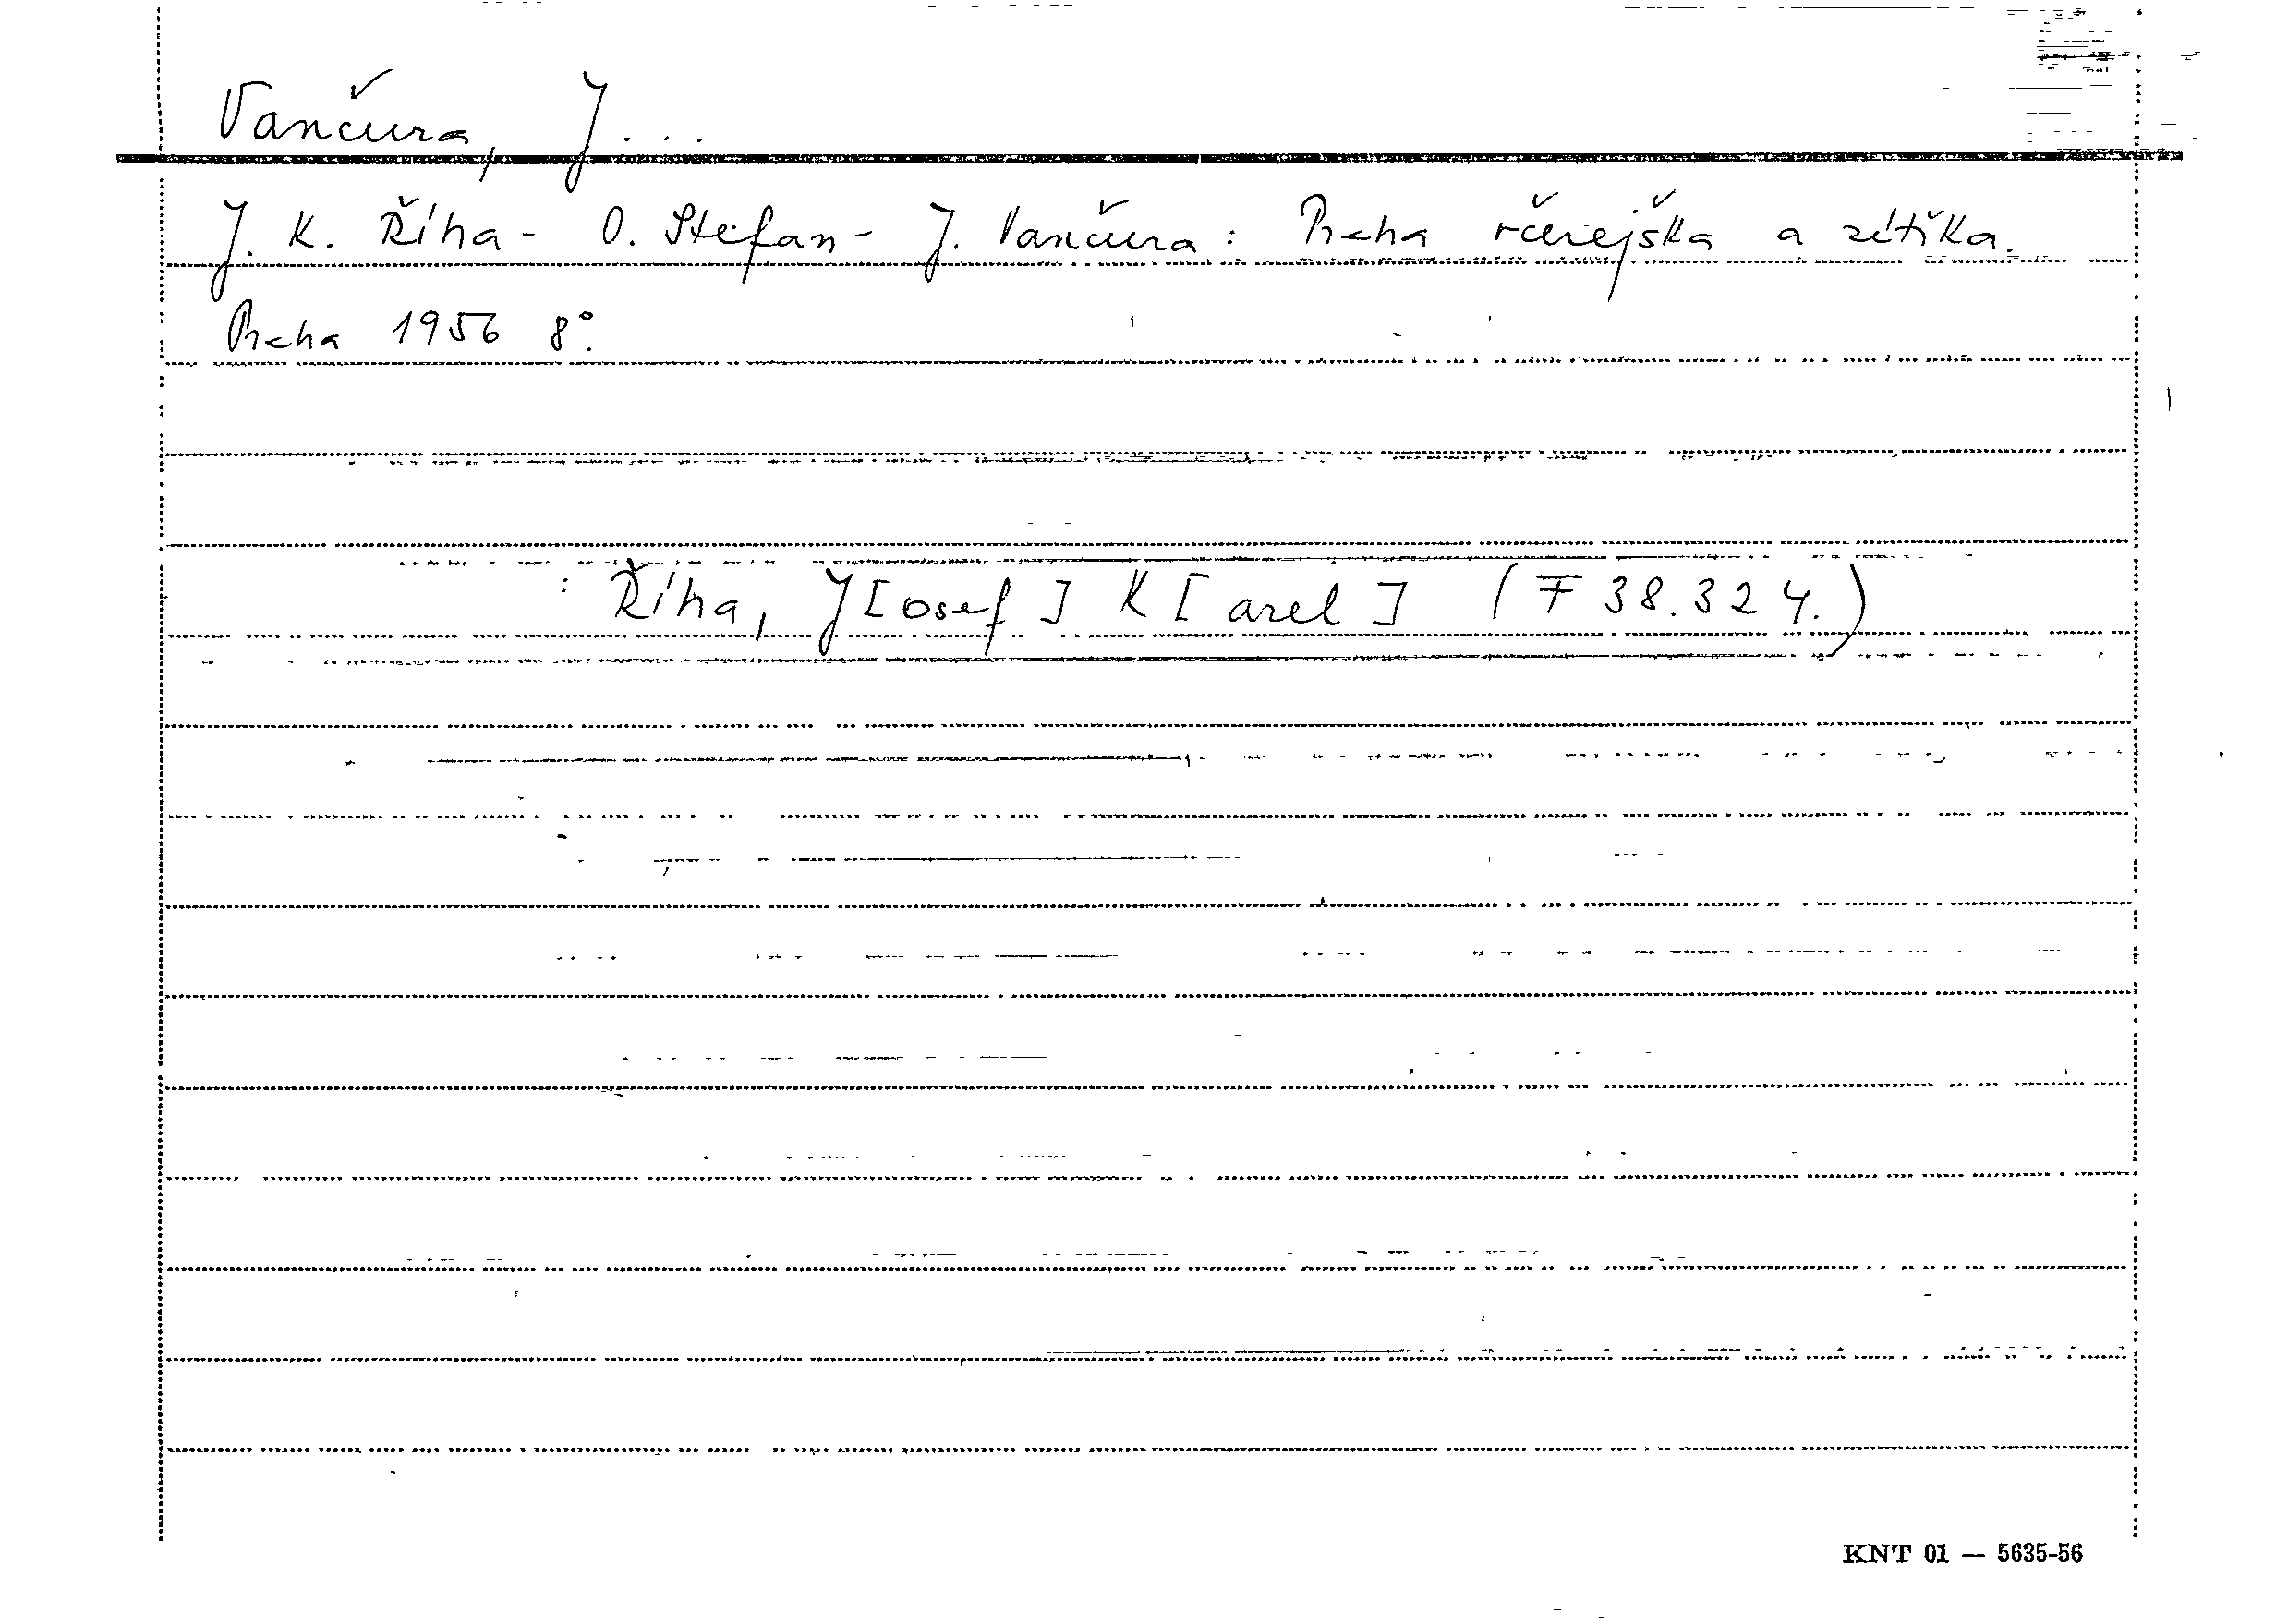 Vančura, J...
J. K. Říha - O. Stefan - J. Vančura: Praha včerejška a zítřka.
Praha 1956 8°.
: Říha, J[osef] K[arel] (F 38.324.)
KNT 01 — 5635-56